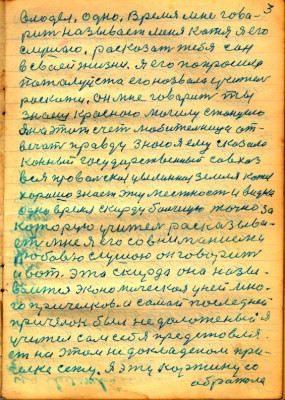 3
Володел, одно, время мне гова-
рит называет меня Катя я его
слушаю, расказат тебя сан
в своей жизни. Я его попросила
пожалуйста
раскати, он мне говарит ты
знаеш красною могилу станцию
Я на этот счет любителница от-
вечат правду знаю я ему сказала
Конный государственный совхоз
вся провалская целинная земля Катя
хорошо знает эту местность и видна
одно время скирду болшую точно за
которую учител расказыва-
ет мне я его со вниманием
любавю слушаю он говорит
вот. эта скирда она назы-
ваится экономическая у ней мно-
го причелков. и самай последней
причелок был не доложеный я
учител сам себя предстовля
ет на этом недокладеном при-
челке сижу. Я эту картину со
обратола